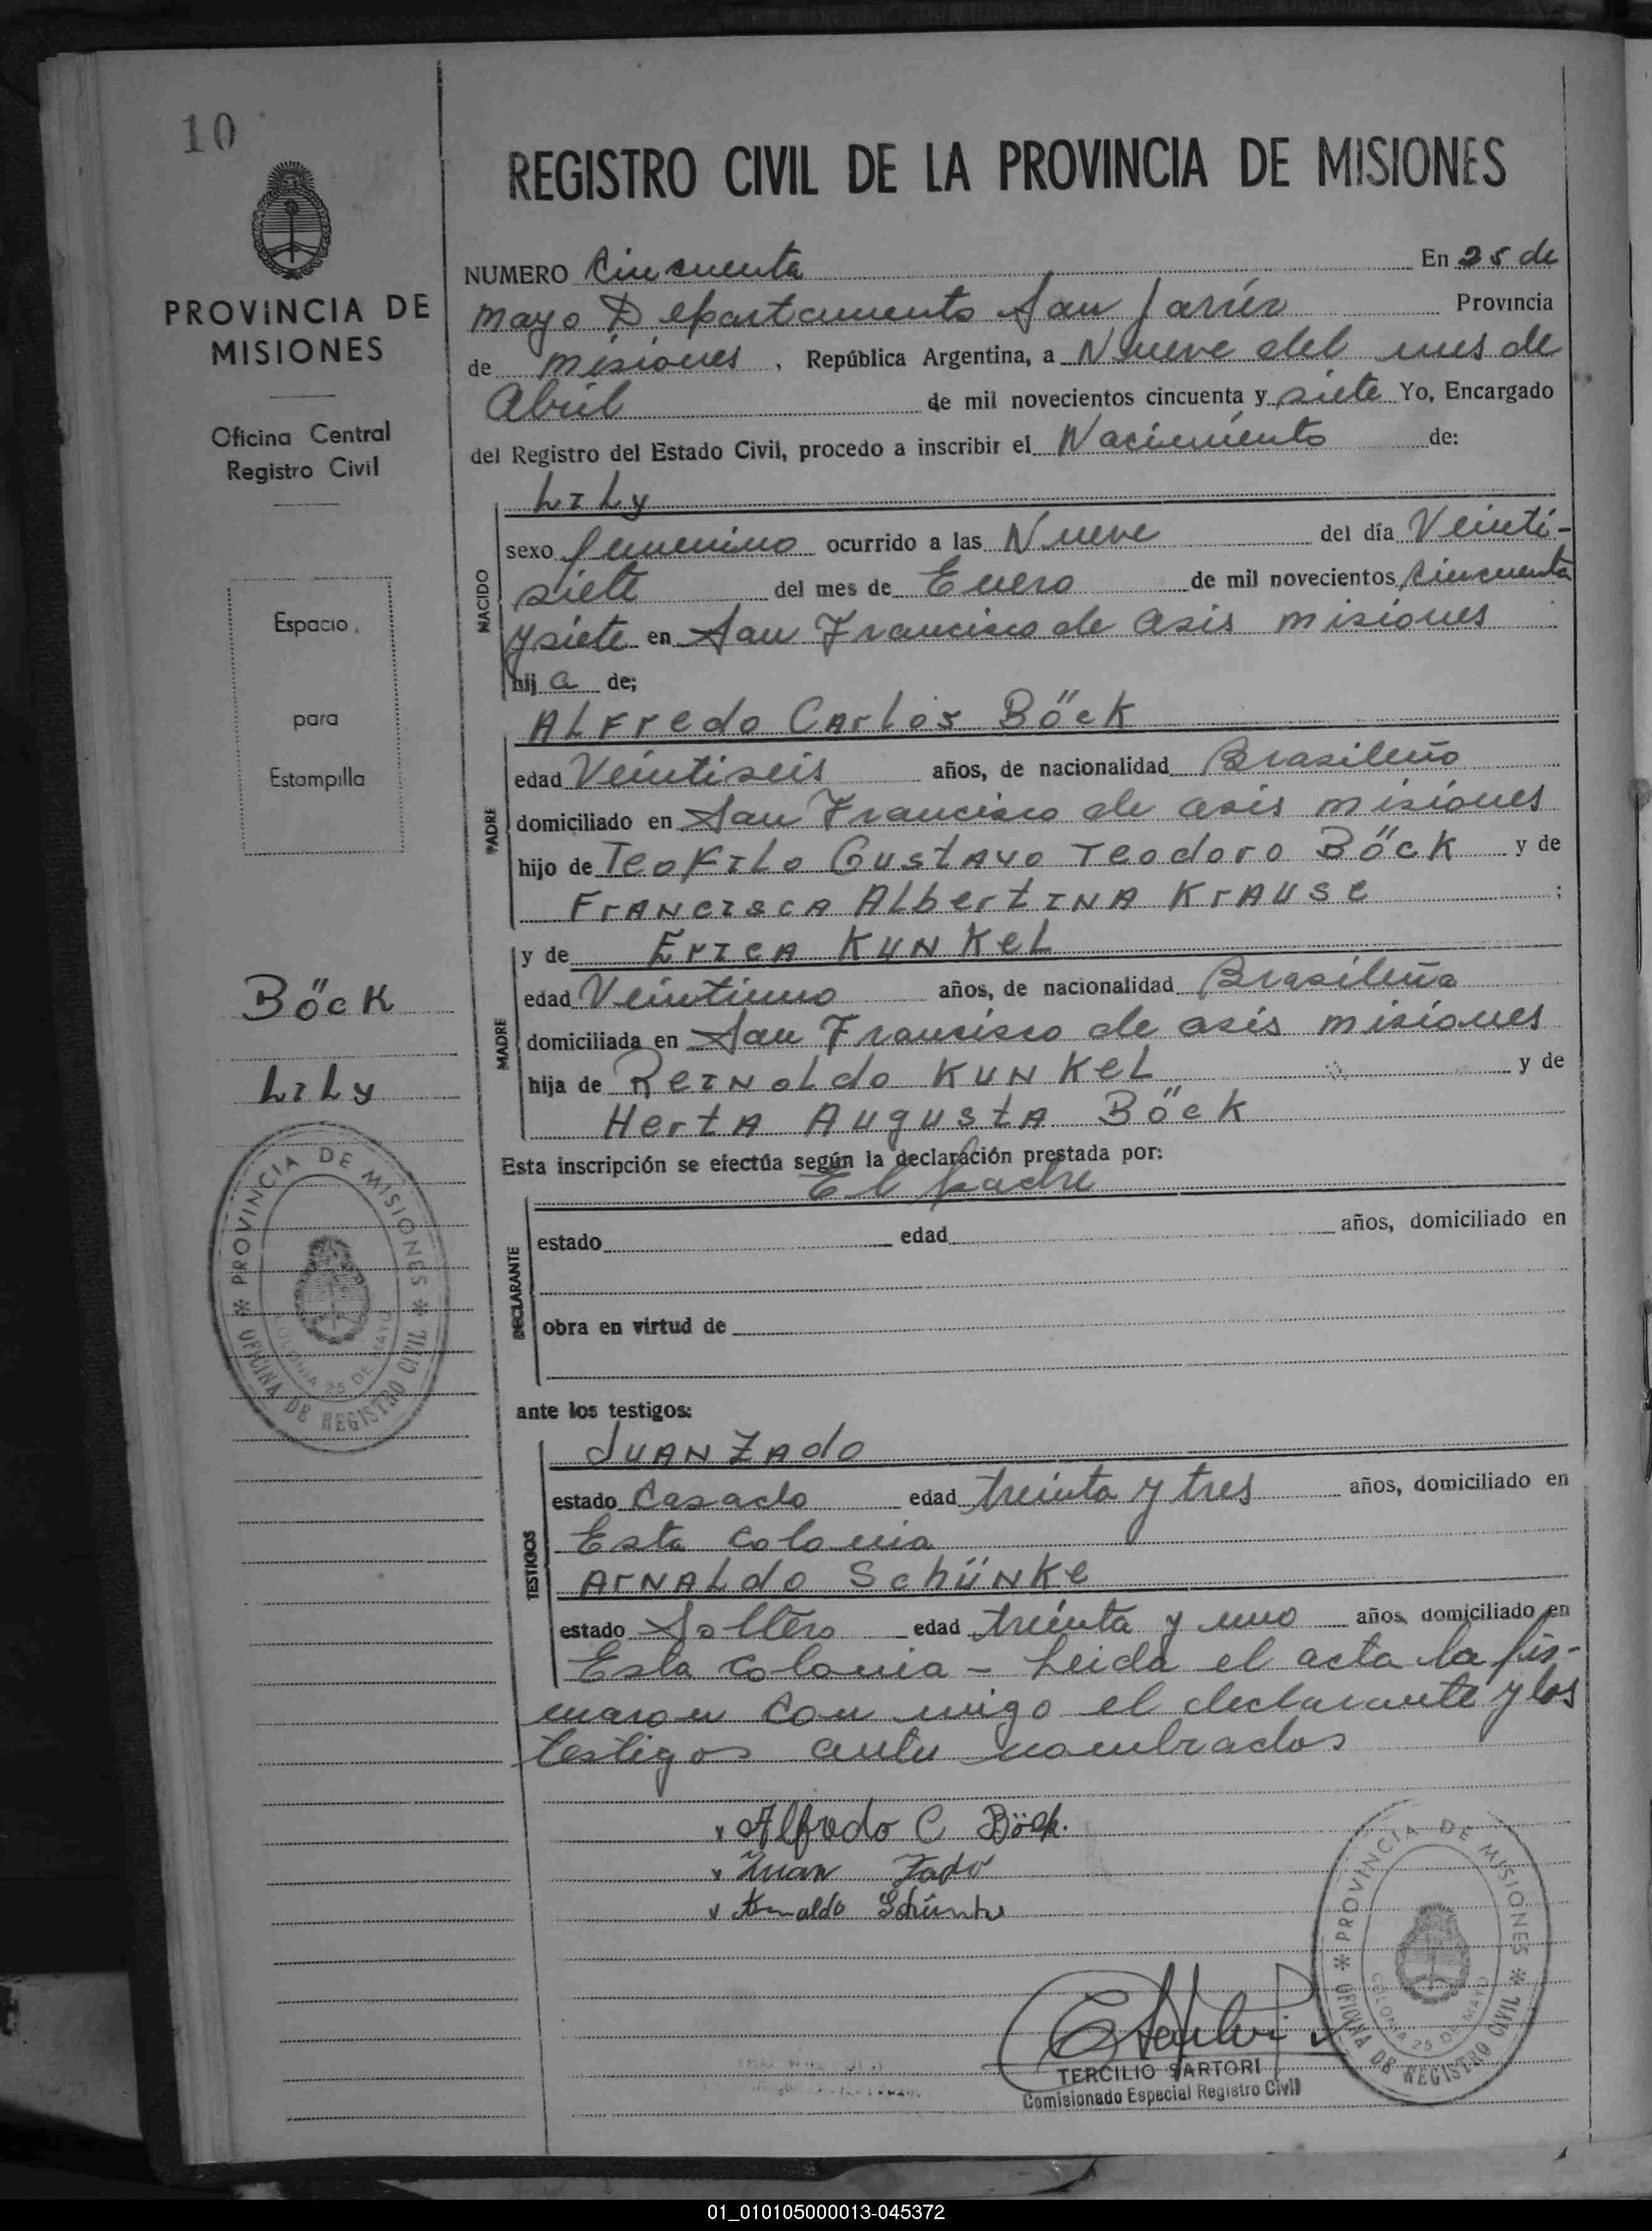 10
PROVINCIA DE
MISIONES
Oficina Central
Registro Civil
Espacio
para
Estampilla
Böck
LILy
PROVINCIA DE MISIONES
OFICINA DE REGISTRO CIVIL
COLONIA 25 DE MAYO
REGISTRO CIVIL DE LA PROVINCIA DE MISIONES
NUMERO Cincuenta En 25 de
mayo Departamento San Javier Provincia
de misiones, República Argentina, a Nueve del mes de
Abril de mil novecientos cincuenta y siete Yo, Encargado
del Registro del Estado Civil, procedo a inscribir el Nacimiento de:
NACIDO
LILy
sexo femenino ocurrido a las Nueve del día Veinti-
siete del mes de Enero de mil novecientos Cincuenta
y siete en San Francisco de asis misiones
hij a de;
PADRE
ALFredo CArLos Böck
edad Veintiseis años, de nacionalidad Brasileño
domiciliado en San Francisco de asis misiones
hijo de TeoFILo GustAvo Teodoro Böck y de
FrANCISCA ALbertINA KrAuse ;
MADRE
y de ErICA KuNKeL
edad Veintiuno años, de nacionalidad Brasileña
domiciliada en San Francisco de asis misiones
hija de ReINoLdo KuNKeL y de
HertA AugustA Böck
Esta inscripción se efectúa según la declaración prestada por:
El padre
DECLARANTE
estado edad años, domiciliado en
obra en virtud de
ante los testigos:
TESTIGOS
JuAN ZAdo
estado Casado edad treinta y tres años, domiciliado en
Esta colonia
ArNALdo SchüNKe
estado Soltero edad treinta y uno años, domiciliado en
Esta colonia - Leida el acta la fir-
maron con migo el declarante y los
testigos ante nombrados
x Alfredo C Böck.
x Juan Zado
x Arnaldo Schünke
TERCILIO SARTORI
Comisionado Especial Registro Civil
PROVINCIA DE MISIONES
OFICINA DE REGISTRO CIVIL
COLONIA 25 DE MAYO
01_010105000013-045372